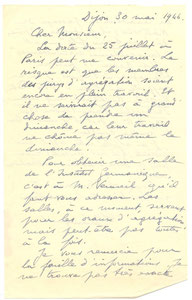 Dijon 30 mai 1946.
Cher Monsieur,
La date du 25 juillet à
Paris peut me convenir. Le
risque est que les membres
des jurys d'agrégation soient
encore en plein travail. Et
il ne servirait pas à grand
chose de prendre un
dimanche, car leur travail
ne chôme pas même le
dimanche !
Pour obtenir une salle
de l'Institut germanique
c'est à M. Vermeil qu'il
faut vous adresser. Les
salles, en ce moment servent
pour les cours d'agrégation
mais peut-être pas toutes
à la fois.
Je vous remercie pour
la feuille d'informations. Je
ne trouve pas très exacte